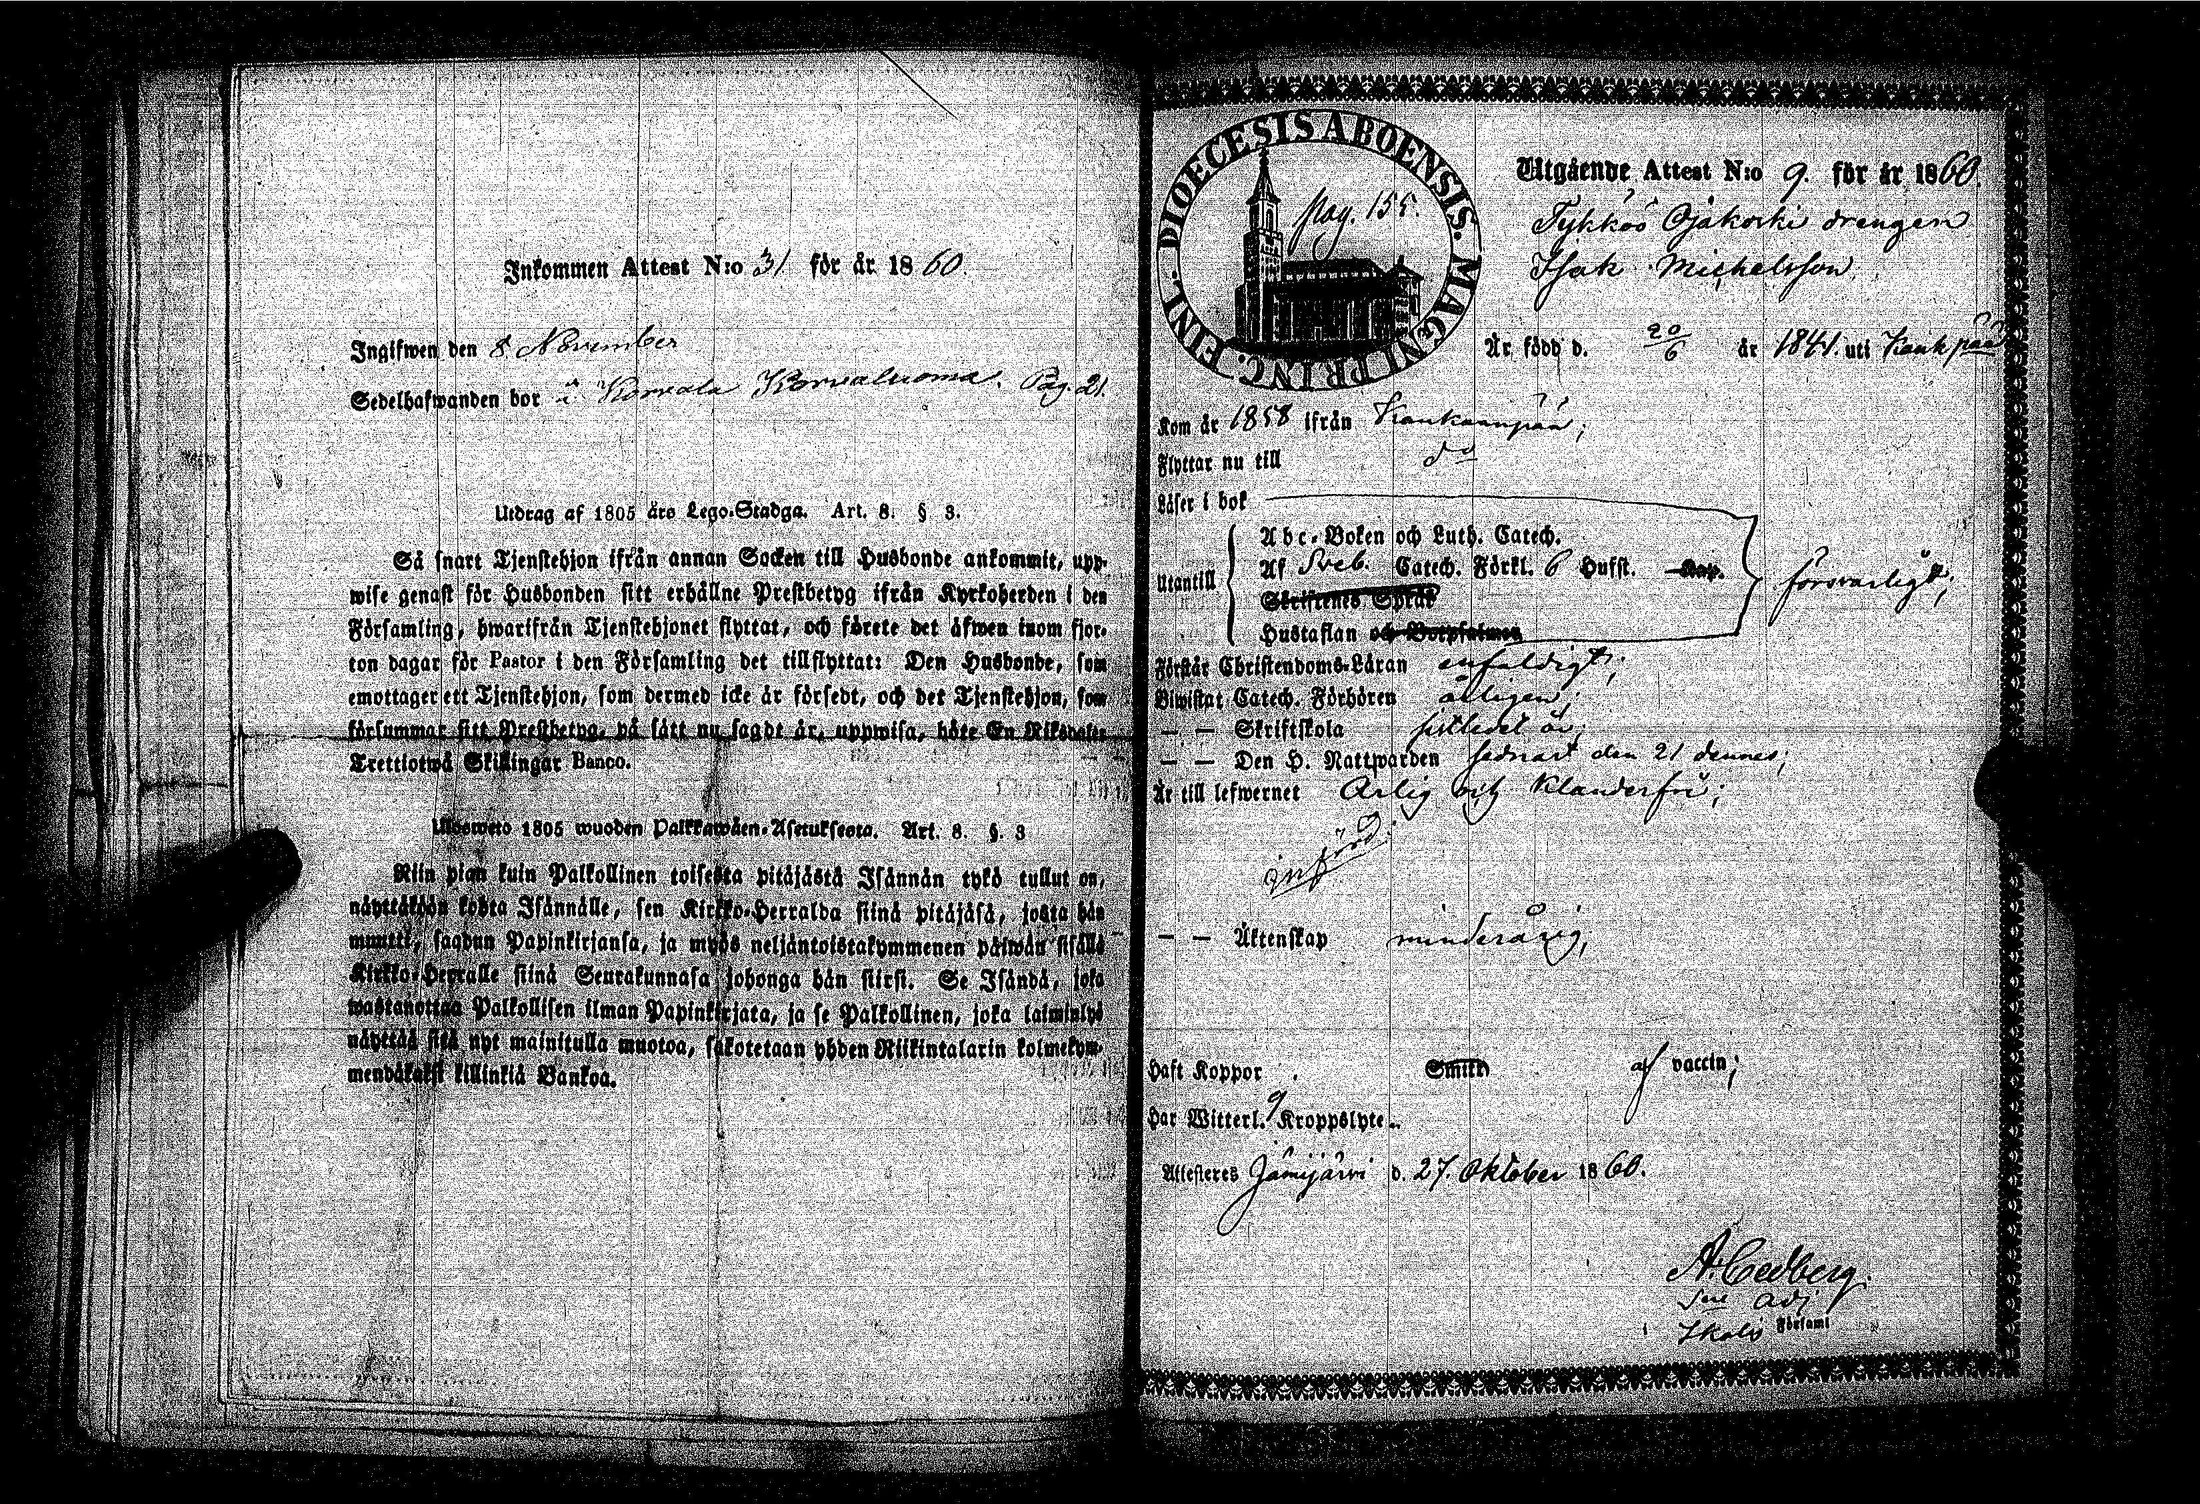 Inkommen Attest N:o 31 för år 1860
Ingifwen den 8 November
Sedelhafwanden bor i Korvala Korvaluoma. Pag. 21.
Utdrag af 1805 års Lego-Stadga. Art. 8. § 3.
Så snart Tjenstehjon ifrån annan Socken till Husbonde ankommit, upp-
wise genast för Husbonden sitt erhållne Prestbetyg ifrån Kyrkoherden i den
Församling, hwarifrån Tjenstehjonet flyttat, och förete det äfwen inom fjor-
ton dagar för Pastor i den Församling det tillflyttat: Den Husbonde, som
emottager ett Tjenstehjon, som dermed icke är försedt, och det Tjenstehjon, som
försummar sitt Prestbetyg, på sätt nu sagdt är, uppwisa, böte En Riksdaler
Trettiotwå Skillingar Banco.
Ulosweto 1805 wuoden Palkkawäen-Asetuksesta. Art. 8. §. 3
Niin pian kuin Palkollinen toisesta pitäjästä Isännän tykö tullut on,
näyttäköön kohta Isännälle, sen Kirkko-Herralda siinä pitäjäsä, josta hän
muutti, saadun Papinkirjansa, ja myös neljäntoistakymmenen päiwän sisällä
Kirkko-Herralle siinä Seurakunnasa johonga hän siirsi. Se Isändä, joka
wastanottaa Palkollisen ilman Papinkirjata, ja se Palkollinen, joka laiminlyö
näyttää sitä nyt mainitulla muotoa, sakotetaan yhden Riikintalarin kolmekym-
mendäkaksi killinkiä Bankoa.
DIOECESIS ABOENSIS. MAGNI PRINC. FINL.
pag. 155.
Utgående Attest N:o 9. för år 1860.
Tykkös Ojakoski drengen
Isak Michelsson,
Är född d. 20/6 år 1841. uti Kankpää
Kom år 1858 ifrån Kankaanpää;
Flyttar nu till do
Läser i bok
Utantill
Abc-Boken och Luth. Catech.
Af Sveb. Catech. Förkl. 6 Hufst. Kap.
Skriftenes Språk
Hustaflan och Botpsalmen
försvarligt;
Förstår Christendoms-Läran enfaldigt;
Biwistat Catech. Förhören årligen;
— — Skriftskola sistledet år;
— — Den H. Nattwarden sednast den 21 dennes;
Är till lefwernet Ärlig och Klanderfri;
införd.
— — Äktenskap minderårig,
Haft Koppor Smitt af vaccin;
Har Witterl. Kroppslyte
Attesteres Jämijärvi d. 27. Oktober 1860.
A. Cedberg.
Adj
Ikalis Församl